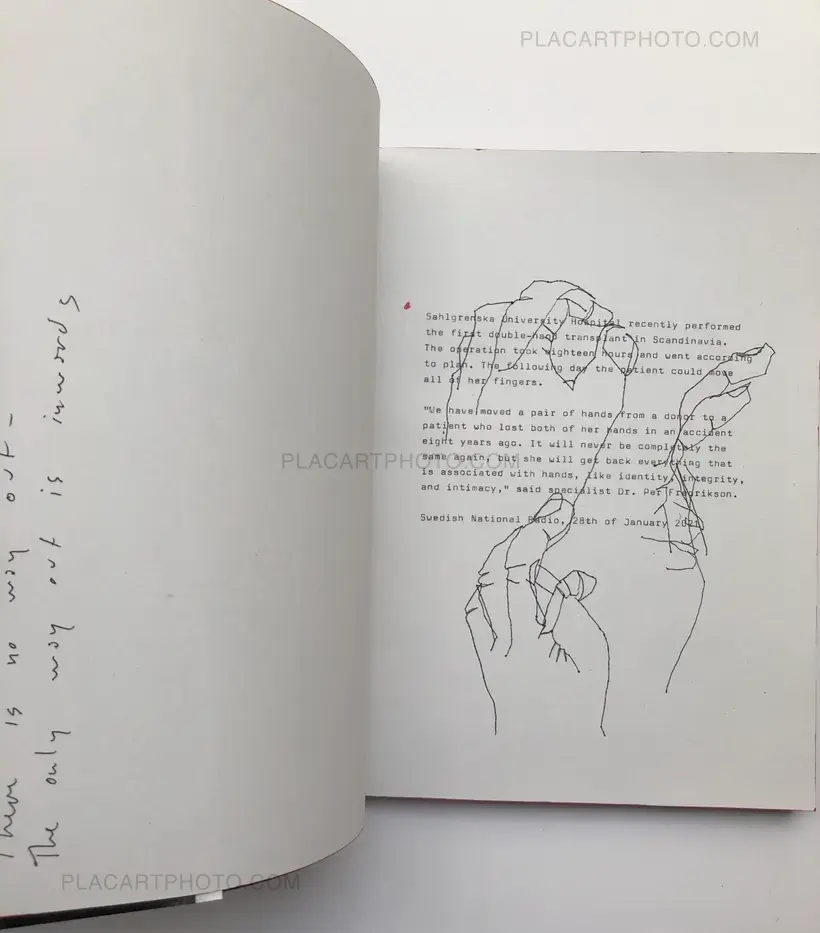 PLACARTPHOTO.COM
There is no way out –
The only way out is inwards
Sahlgrenska University Hospital recently performed
the first double-hand transplant in Scandinavia.
The operation took eighteen hours and went according
to plan. The following day the patient could move
all of her fingers.
"We have moved a pair of hands from a donor to a
patient who lost both of her hands in an accident
eight years ago. It will never be completely the
same again, but she will get back everything that
is associated with hands, like identity, integrity,
and intimacy," said specialist Dr. Per Fredrikson.
PLACARTPHOTO.COM
Swedish National Radio, 28th of January 2021
PLACARTPHOTO.COM